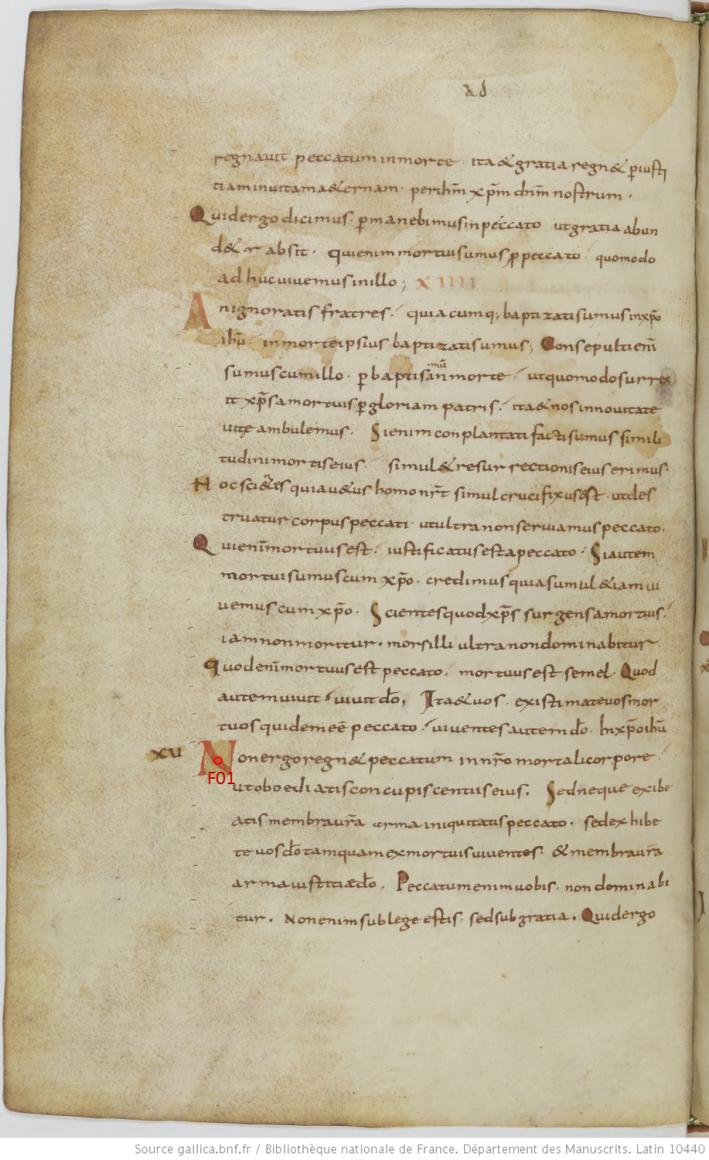 ad
regnauit peccatum inmorte · ita & gratia regn& p iusti
tiam inuitam a&ernam · per ihm xpm dnm nostrum ·
Quid ergo dicimus · pmanebimus in peccato ut gratia abun
d& absit · qui enim mortui sumus p peccato · quomodo
ad huc uiuemus inillo ; XIIII
An ignoratis fratres · quia cumq; baptizati sumus inxpo
ihu · in morte ipsius baptizati sumus ; Consepulti enim
sumus cum illo · p baptismum in morte · ut quomodo surrex
it xps a mortuis p gloriam patris · ita & nos in nouitate
uite ambulemus · Si enim conplantati facti sumus simili
tudini mortis eius · simul & resurrectionis eius erimus ·
Hoc scientes quia u&us homo nr simul crucifixus est · ut des
truatur corpus peccati · ut ultra non seruiamus peccato ·
Qui enim mortuus est · iustificatus est a peccato · Si autem
mortui sumus cum xpo · credimus quia simul &iam ui
uemus cum xpo · Scientes quod xps surgens a mortuis ·
iam non moritur · mors illi ultra non dominabitur
quod enim mortuus est peccato · mortuus est semel · Quod
autem uiuit · uiuit do, Ita & uos · existimate uos mor
tuos quidem ee peccato · uiuentes autem do · In xpo ihu
XV Non ergo regn& peccatum in nro mortali corpore
F01
ut oboediatis concupiscentiis eius · Sed neque exibe
atis membra ura arma iniquitatis peccato · sed exhibe
te uos do tamquam ex mortuis uiuentes · & membra ura
arma iustitiae do · Peccatum enim uobis · non dominabi
tur · Non enim sub lege estis · sed sub gratia · Quid ergo
Source gallica.bnf.fr / Bibliothèque nationale de France. Département des Manuscrits. Latin 10440